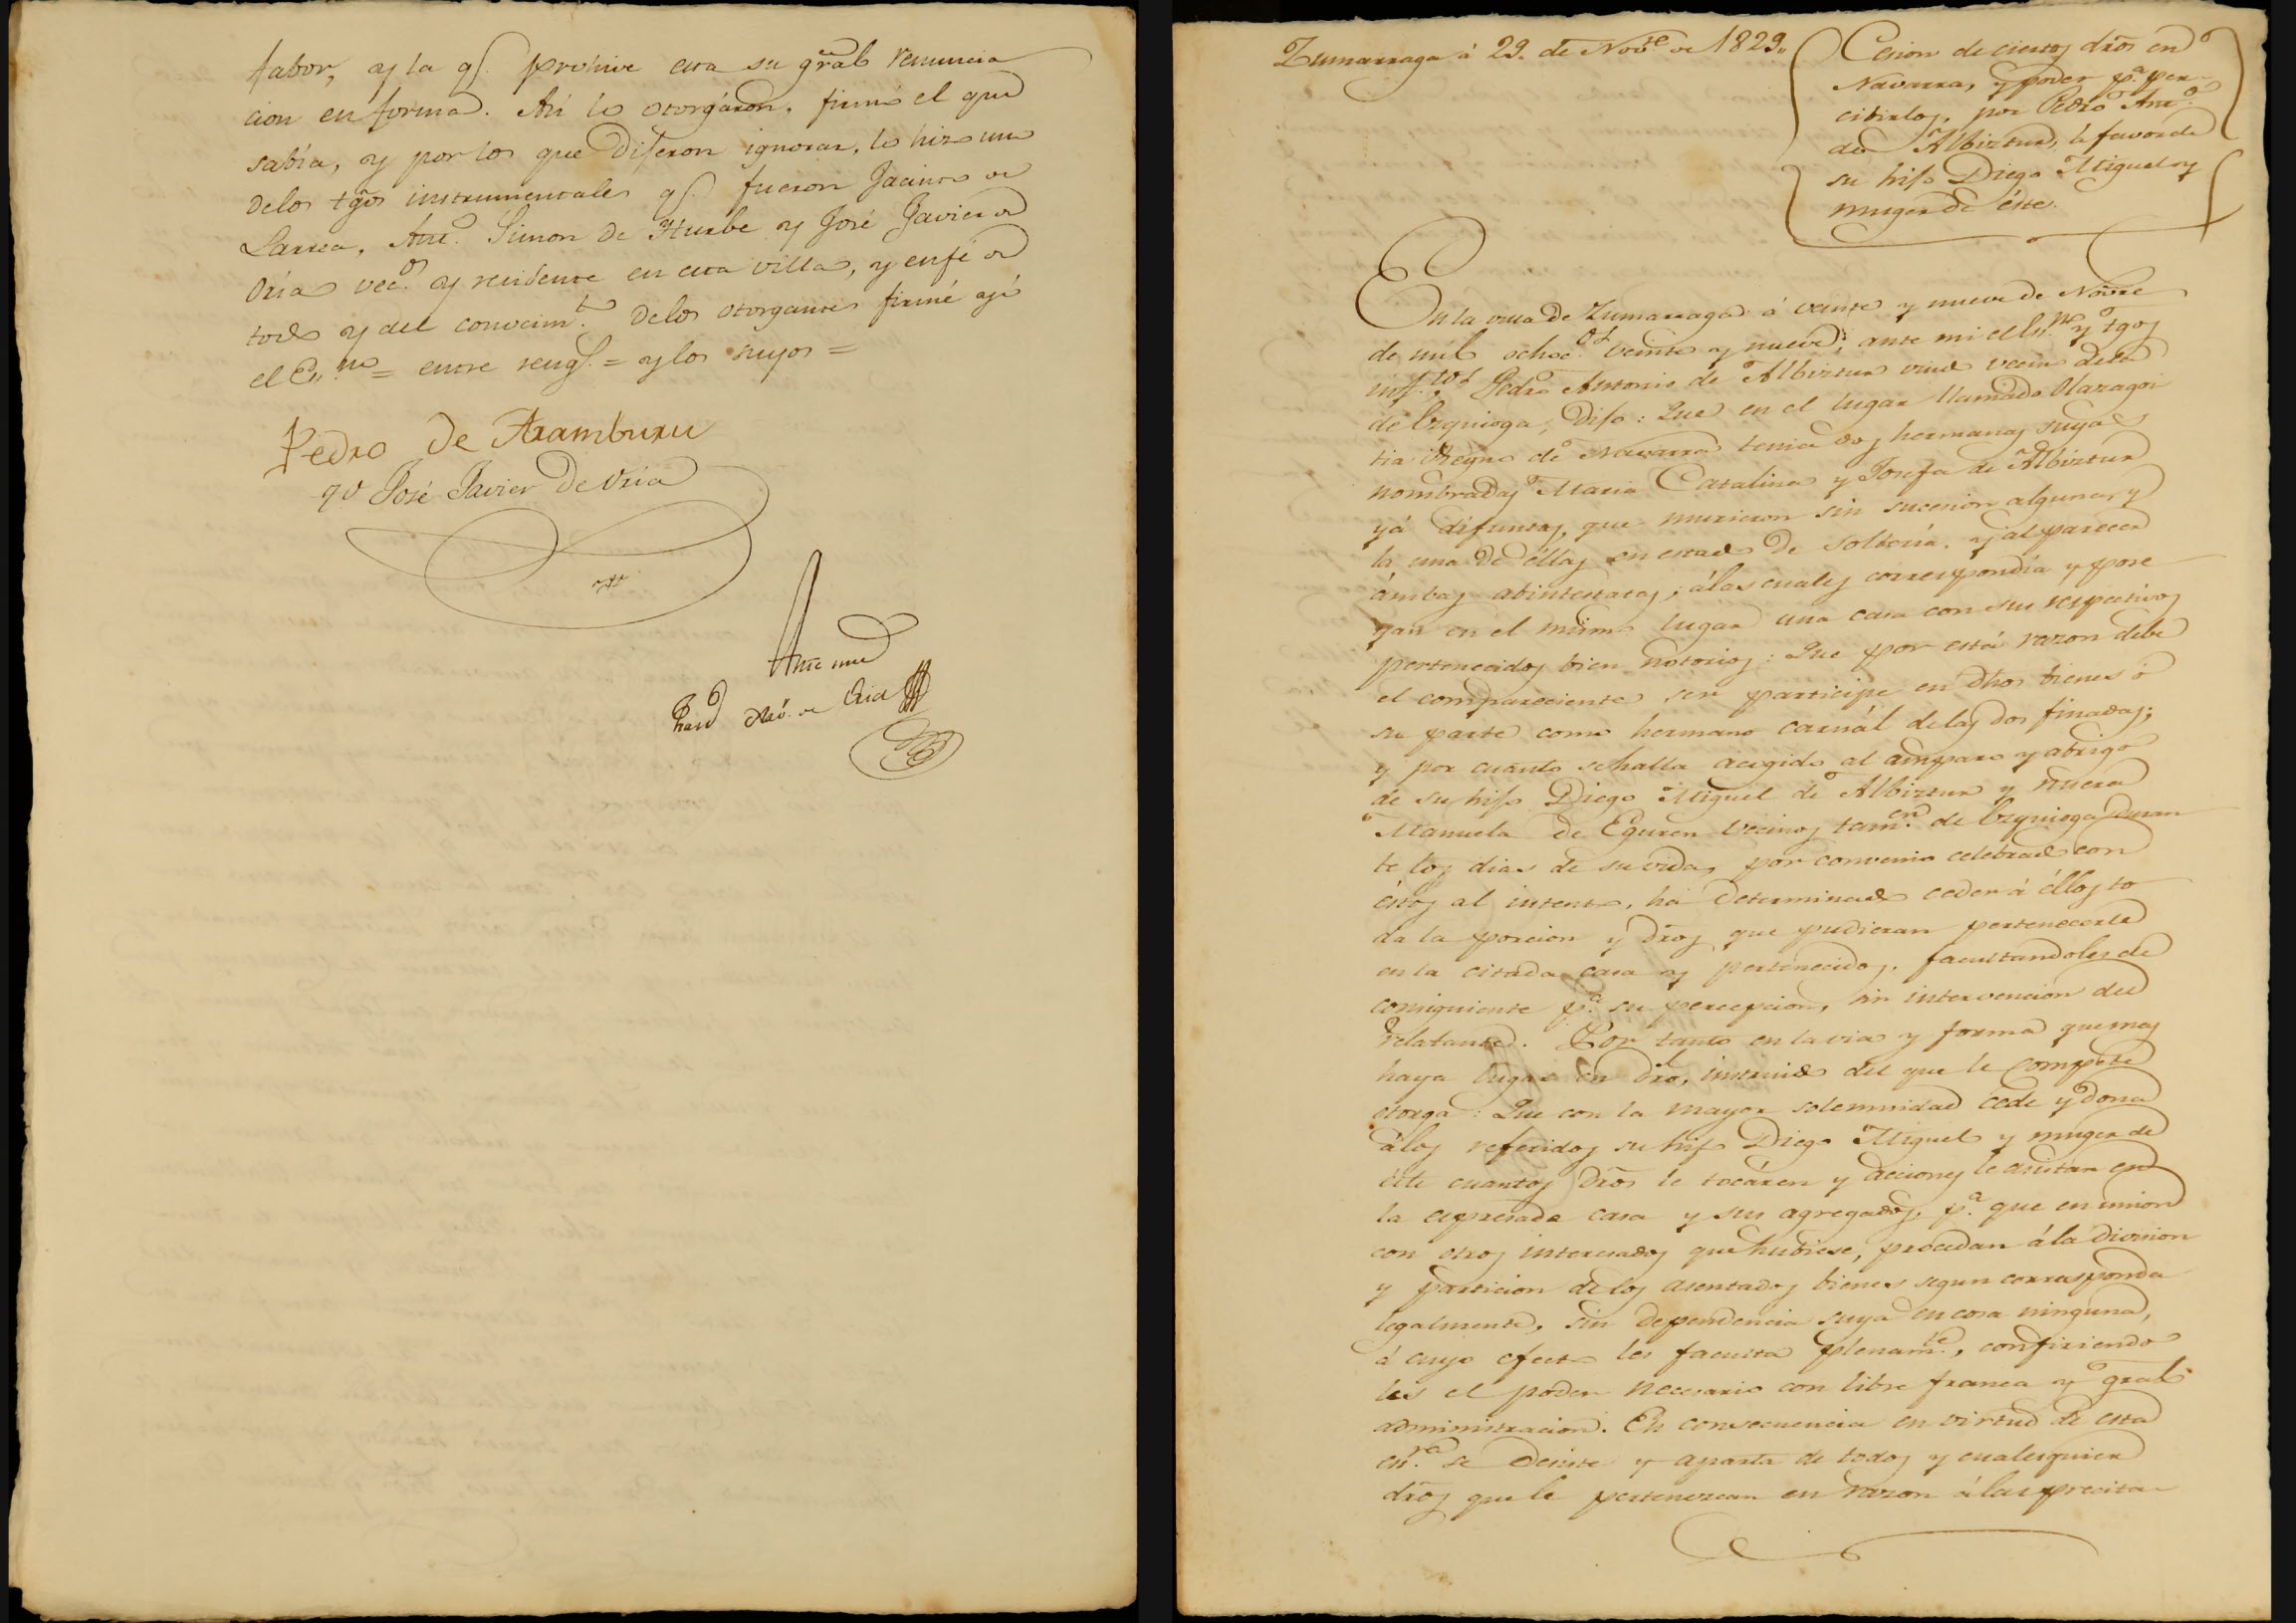 fabor, y la q.e prohive esta su gral renuncia
cion en forma. Asi lo otorgáron, firmó el que
sabía, y por los que Dijeron ignorar, lo hizo uno
delos tgos instrumentales q.e fueron Jacinto de
Larrea, Ant.o Simon de Iturbe y José Javier de
Oria vec.os y residente en esta villa, y enfé de
todo y del conocim.to delos otorgantes firmé yó
el Es.no = entre rengs. = y los suyos =
Pedro de Aramburu
José Javier De Oria
Ante mi
de Oria
Zumarraga á 29. de Nov.e de 1829.
Cesion de ciertos dros en
Navarra, y poder p.a per-
cibirlos, por Pedro Ant.o
de Albiztur, á favor de
su hijo Diego Miguel y
muger de éste.
En la villa de Zumarraga á veinte y nueve de Novre
de mil ochoc.os veinte y nueve; ante mi el Es.no y tgos
inf.tos Pedro Antonio de Albiztur viudo vecino dela
de Ezquioga, Dijo: Que en el lugar llamado Olazagoi
tia Reyno de Navarra tenía dos hermanas suyas
nombradas Maria Catalina y Josefa de Albiztur
yá difuntas, que murieron sin sucesion alguna, y
la una de éllas en estado de soltería, y al parecer
ámbas abintestatas; á las cuales correspondía y pose
yan en el mismo lugar una casa con sus respectivos
pertenecidos bien notorios: Que por está razon debe
el compareciente ser participe en dhos bienes ó
su parte como hermano carnál delas dos finadas;
y por cuanto se halla acogido al amparo y abrigo
de su hijo Diego Miguel de Albiztur y nuera
Manuela de Eguren vecinos tam.en de Ezquioga duran
te los dias de su vida, por convenio celebrado con
éstos al intento, há determinado ceder á éllos to
da la porcion y dros que pudieran pertenecerle
en la citada casa y pertenecidos, facultandoles de
consiguiente p.a su percepcion, sin intervencion del
relatante. Por tanto en la via y forma que mas
haya lugar en dro, instruido del que le compete
otorga: Que con la mayor solemnidad cede y dona
álos referidos su hijo Diego Miguel y muger de
éste cuantos dros le tocáren y acciones le asistan en
la expresada casa y sus agregados, p.a que en union
con otros interesados que hubiese, procedan á la division
y particion delos asentados bienes segun corresponda
legalmente, sin dependencia suya en cosa ninguna,
á cuyo efecto les faculta plenam.te, confiriendo
les el poder necesario con libre franca y gral
administracion. En consecuencia en virtud de esta
es.ra se desiste y aparta de todos y cualesquier
dros que le pertenezcan en razon á las precita-